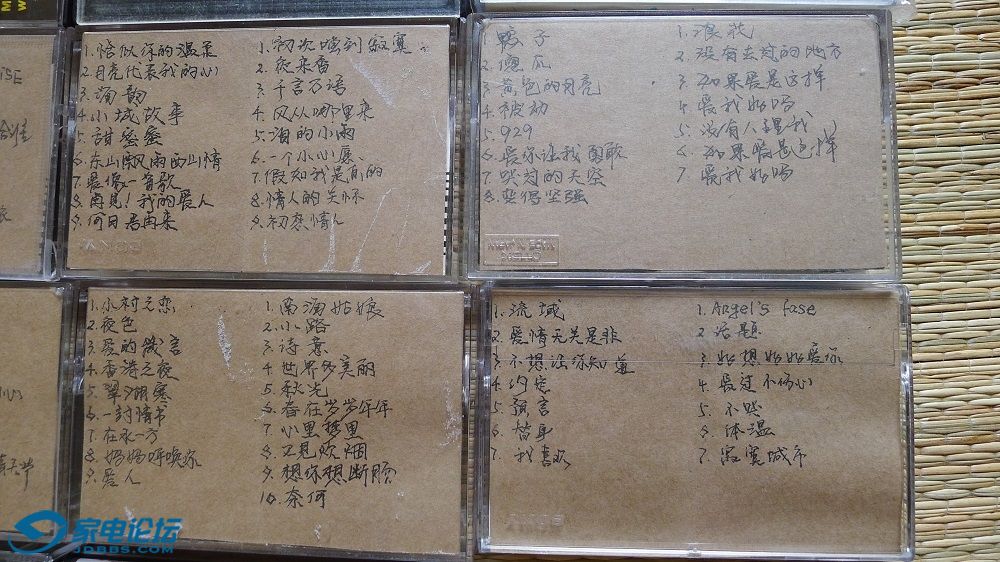 1. 恰似你的温柔
2. 月亮代表我的心
4. 小城故事
5. 甜蜜蜜
6. 东山飘雨西山情
7. 最后一首歌
8. 再见！我的爱人
9. 何日君再来
1. 初次尝到寂寞
2. 夜来香
3. 千言万语
4. 风从哪里来
5. 泪的小雨
6. 一个小心愿
7. 假如我是真的
8. 情人的关怀
9. 初恋情人
SONY
1. 鸭子
2. 傻瓜
3. 黄色的月亮
4. 被动
5. 929
6. 爱你让我勇敢
7. 哭过的天空
8. 要得坚强
1. 浪花
2. 没有去过的地方
3. 如果爱是这样
4. 爱我好吗
5. 没有人理我
6. 如果爱是这样
7. 爱我好吗
1. 小村之恋
2. 夜色
3. 爱的箴言
4. 香港之夜
5. 翠湖寒
6. 一封情书
7. 在水一方
8. 妈妈呼唤你
9. 爱人
1. 南海姑娘
2. 小路
3. 诗意
4. 世界多美丽
5. 秋光
6. 春在岁岁年年
7. 心里梦里
8. 又见炊烟
9. 想你想断肠
10. 奈何
1. 流域
2. 爱情无关是非
3. 不想让你知道
4. 约定
5. 预言
6. 替身
7. 我喜欢
1. Angel's fase
2. 话题
3. 好想好好爱你
4. 最过不伤心
5. 不哭
6. 体温
7. 寂寞城市
SONY
家电论坛
JDBBS.COM